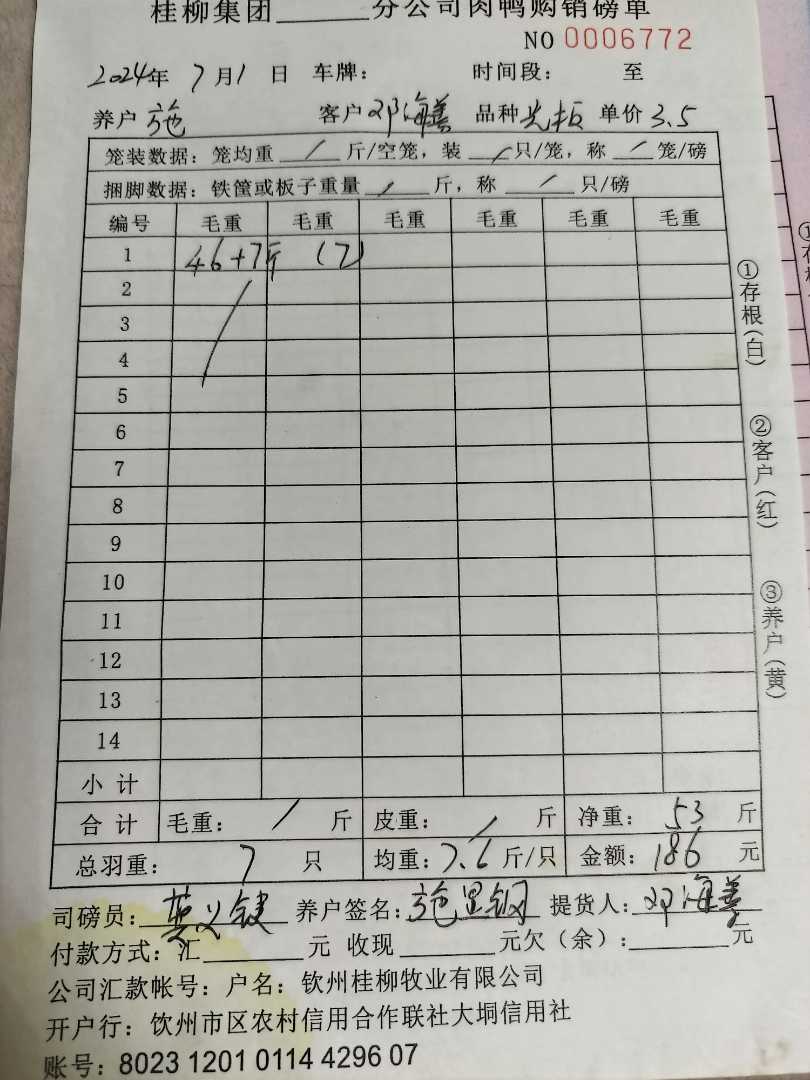 桂柳集团______分公司肉鸭购销磅单
NO 0006772
2024年 7月1日 车牌: 时间段: 至
养户 施 客户 邓海善 品种 光板 单价 3.5
笼装数据: 笼均重 / 斤/空笼, 装 / 只/笼, 称 / 笼/磅
捆脚数据: 铁筐或板子重量 / 斤, 称 / 只/磅
编号 毛重 毛重 毛重 毛重 毛重 毛重
1 46+7斤 (7)
2
3
4
5
6
7
8
9
10
11
12
13
14
小计
合计 毛重: / 斤 皮重: / 斤 净重: 53 斤
总羽重: 7 只 均重: 7.6 斤/只 金额: 186 元
司磅员: 养户签名: 施 提货人: 邓海善
付款方式: 汇______元 收现______元欠(余):______元
公司汇款帐号: 户名: 钦州桂柳牧业有限公司
开户行: 饮州市区农村信用合作联社大垌信用社
账号: 8023 1201 0114 4296 07
①存根(白)
②客户(红)
③养户(黄)